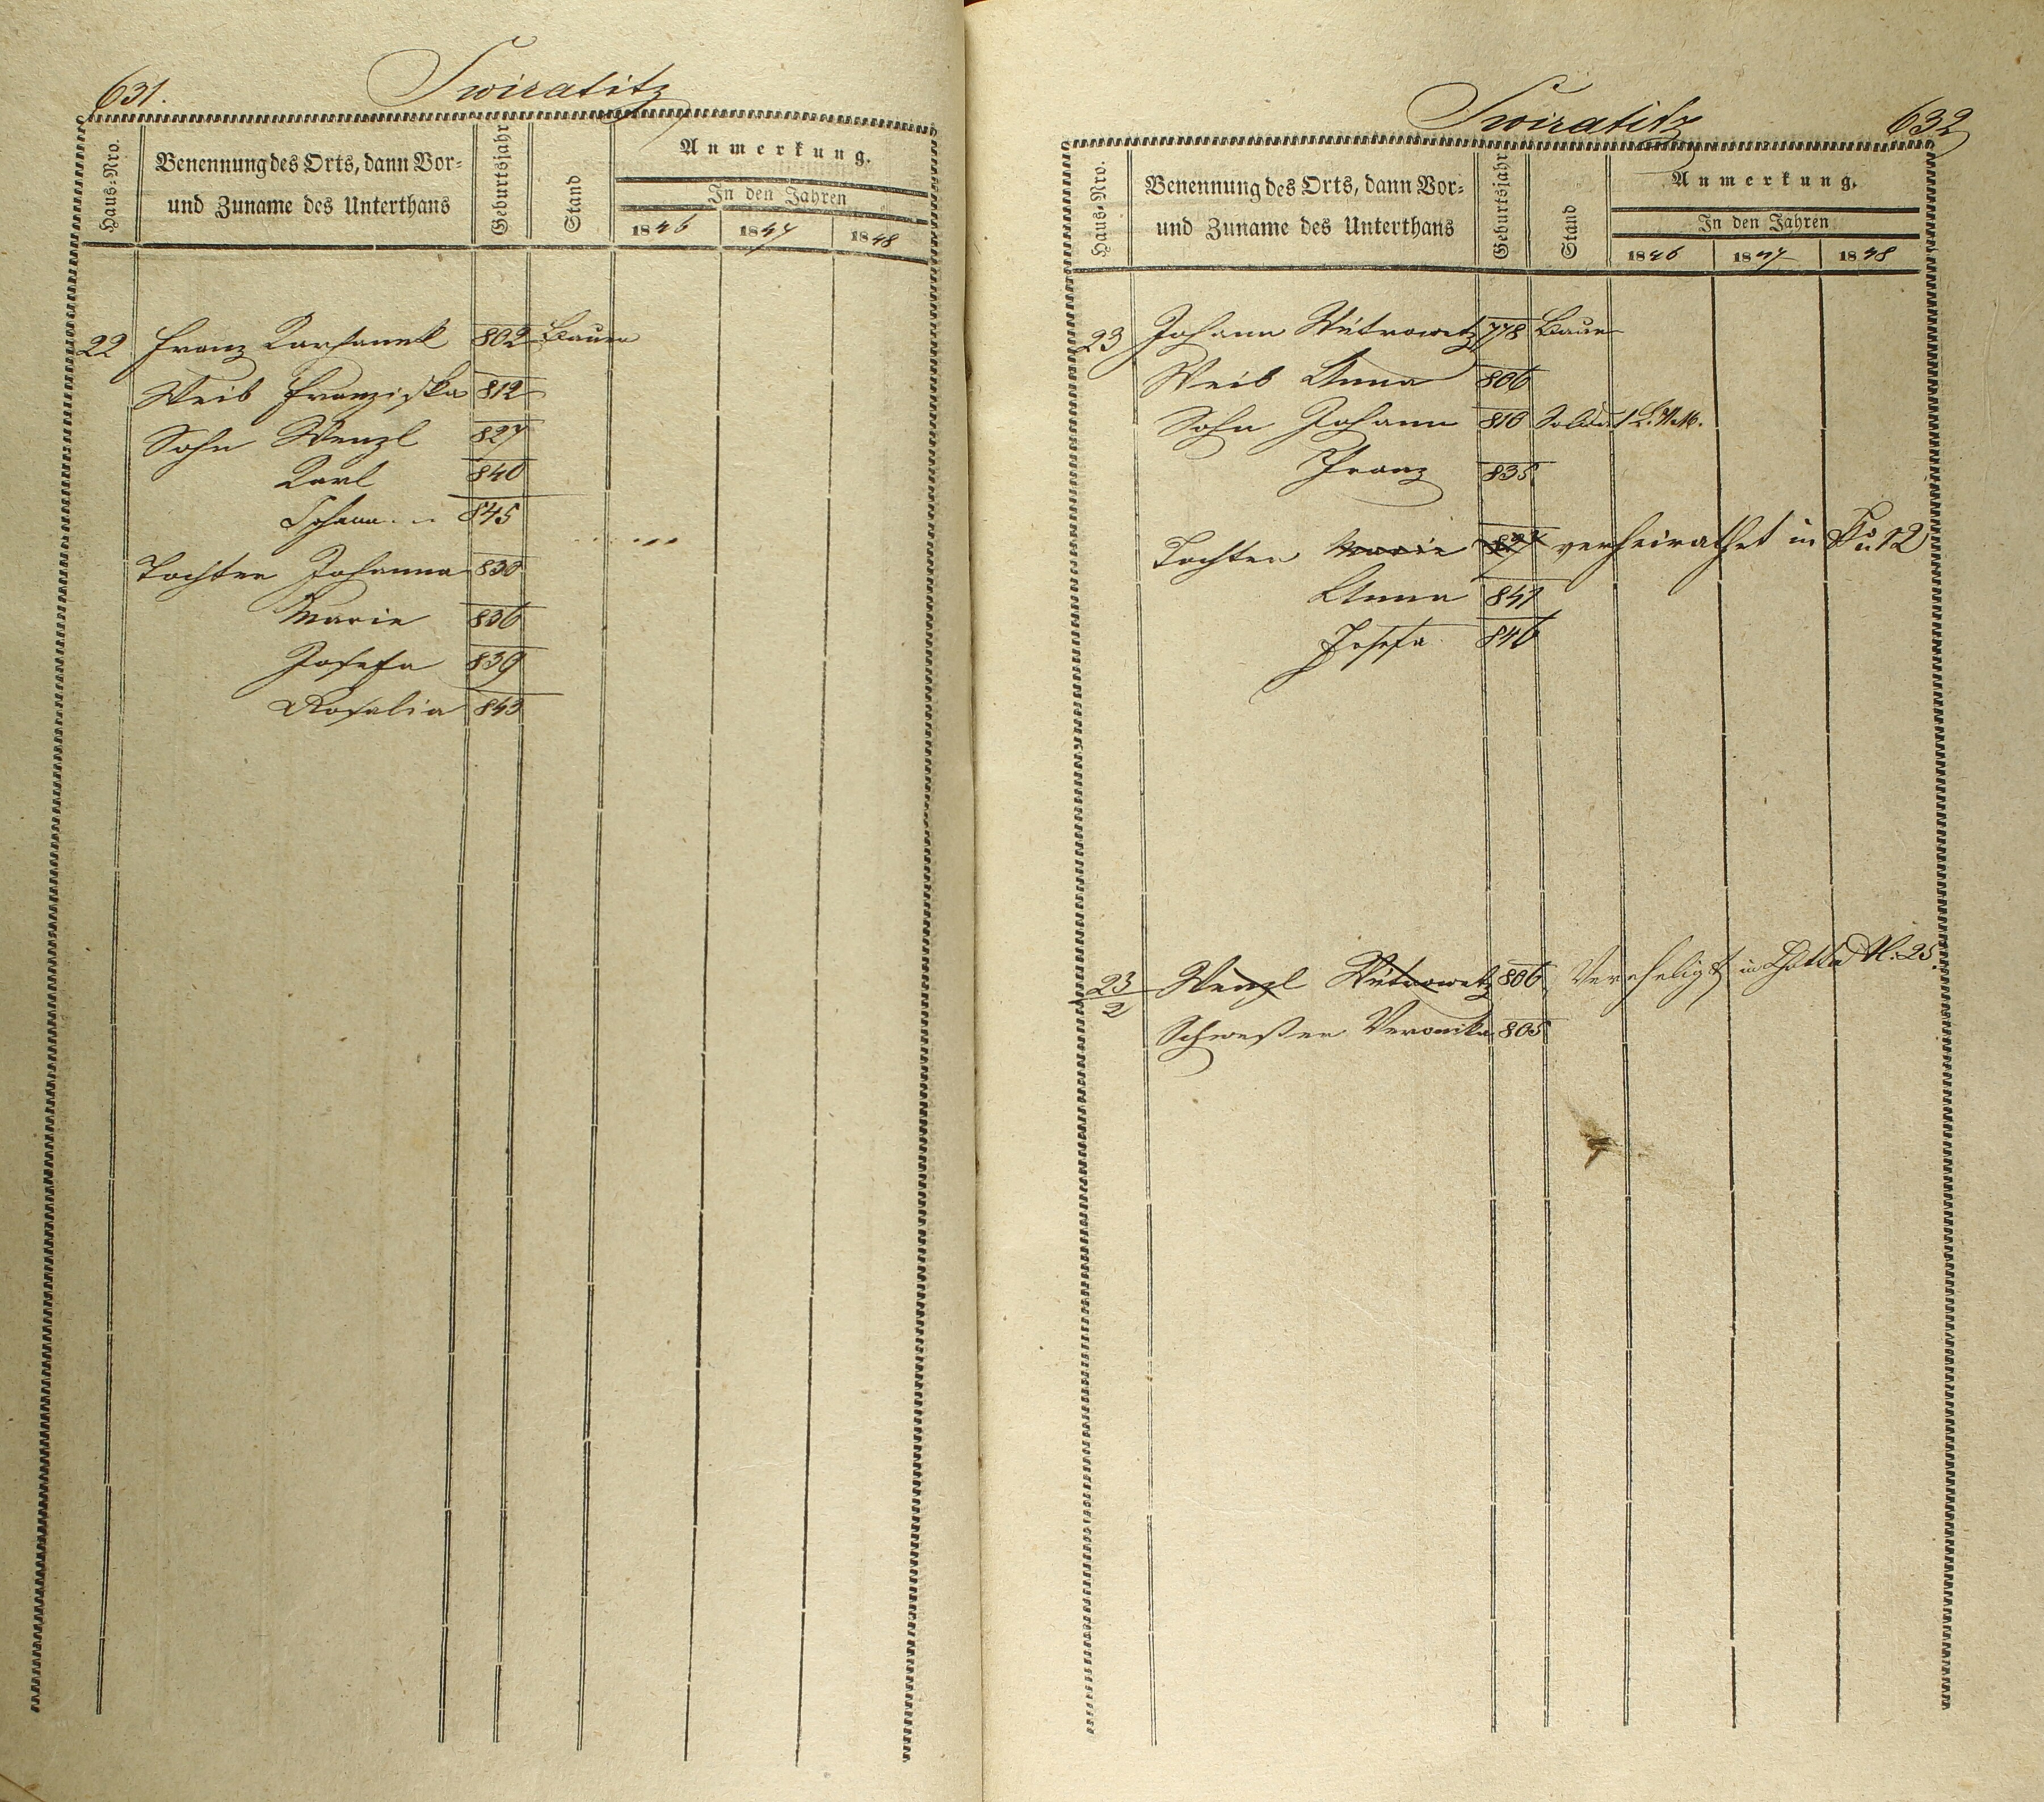 631. Swiratitz
Haus-Nro.
Benennung des Orts, dann Vor-
und Zuname des Unterthans
Geburtsjahr
Stand
Anmerkung.
In den Jahren
1846 1847 1848
22 Franz 802 Bauer
Weib Franziska 812
Sohn Wenzl 827
Karl 840
Johann 845
Tochter Johanna 830
Marie 836
Josefa 839
Rosalia 843
Swiratitz 632
Haus-Nro.
Benennung des Orts, dann Vor-
und Zuname des Unterthans
Geburtsjahr
Stand
Anmerkung.
In den Jahren
1846 1847 1848
23 Johann Wětrowetz 778 Bauer
Weib Anna 806
Sohn Johann 810 Soldat
Franz 835
Tochter Marie verheirathet in 12
Anna 841
Josefa 846
23/2 Wenzl Wětrowetz 806 Vereheligt in Lhotta N. 25.
Schwester Veronika 805